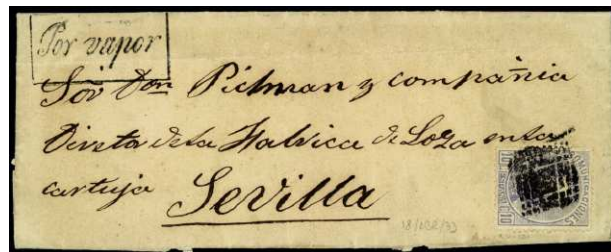 Por vapor
Sor Don Picman y compañia
Direta de la Fabrica de Loza en la
cartuja
Sevilla
18/ABR/73
COMUNICACIONES